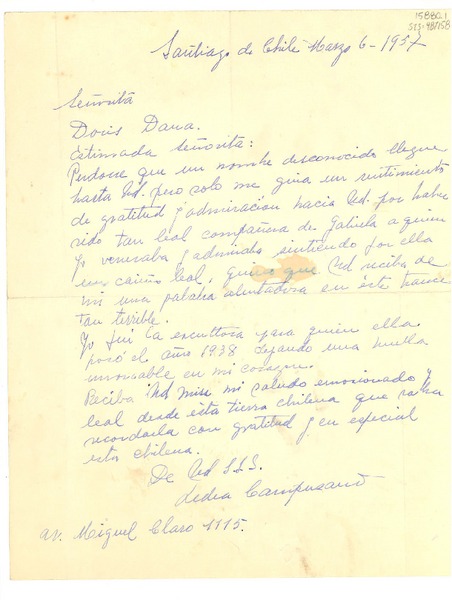 15880.1
Santiago de Chile Marzo 6-1957
Señorita
Doris Dana.
Estimada Señorita:
Perdone que un nombre desconocido llegue
hasta Ud. pero solo me guia un sentimiento
de gratitud y admiración hacia Ud. por haber
sido tan leal compañera de Gabriela a quien
yo veneraba y admiraba sintiendo por ella
un cariño leal, quiero que Ud reciba de
mi una palabra alentadora en este trance
tan terrible.
Yo fui la escultora para quien ella
posó el año 1938 dejando una huella
imborrable en mi corazon.
Reciba Ud miss mi saludo emocionado y
leal desde esta tierra chilena que sabra
recordarla con gratitud y en especial
esta chilena.
De Ud S.S.S.
Ledia Campusano
av. Miguel Claro 1115.